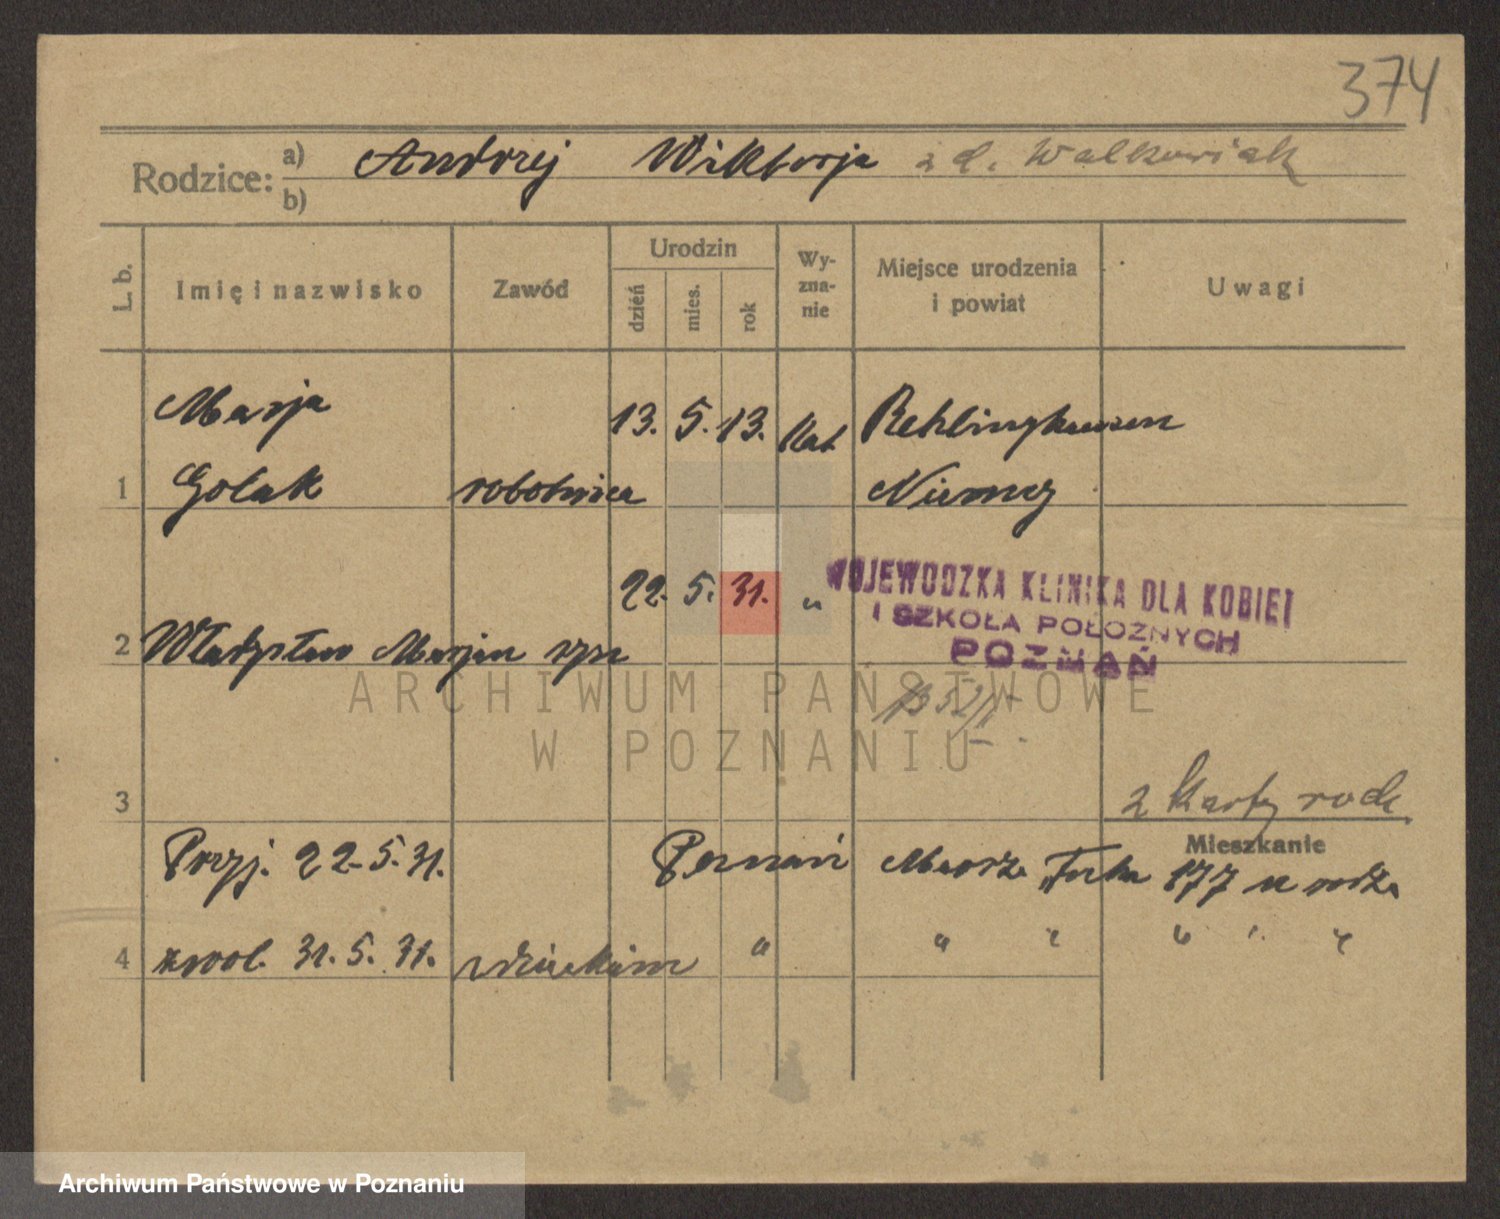 374
Rodzice: a) Andrzej Wiktorja z d. Walkowiak
b)
L. b. Imię i nazwisko Zawód Urodzin dzień mies. rok Wy-zna-nie Miejsce urodzenia i powiat Uwagi
Marja 13. 5. 13. kat. Rehlinghausen
1 Golak robotnica Niemcy
22. 5. 31. "
WOJEWODZKA KLINIKA DLA KOBIET
I SZKOŁA POŁOŻNYCH
POZNAŃ
2 Władysław Marjan syn
ARCHIWUM PAŃSTWOWE
W POZNANIU
3 z karty rodz.
Mieszkanie
Przyj. 22. 5. 31. Poznań Marsz. Focha 177 u rodz.
4 zwol. 31. 5. 31. z dzieckiem " " " " " "
Archiwum Państwowe w Poznaniu